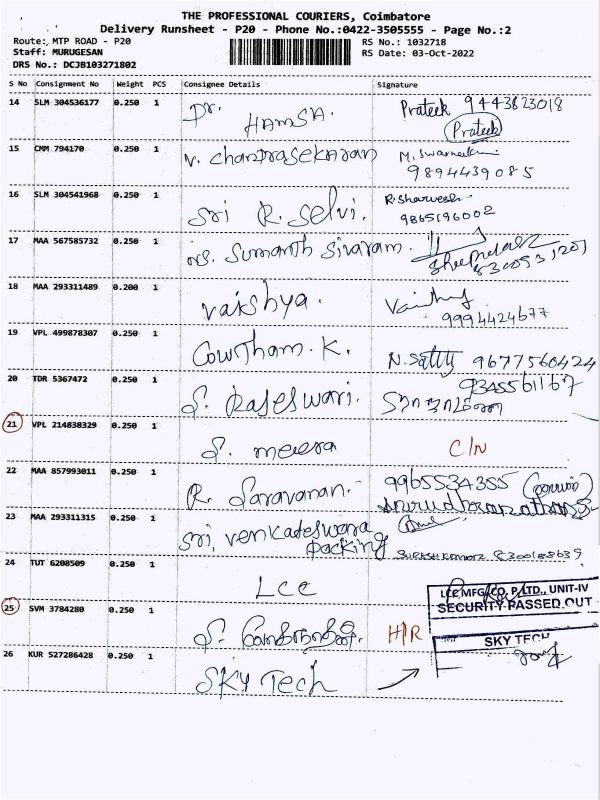 THE PROFESSIONAL COURIERS, Coimbatore
Delivery Runsheet - P20 - Phone No.:0422-3505555 - Page No.:2
Route: MTP ROAD - P20
RS No.: 1032718
Staff: MURUGESAN
RS Date: 03-Oct-2022
DRS No.: DCJB103271802
S No Consignment No Weight PCS Consignee Details Signature
14 SLM 304536177 0.250 1 Dr. HAMSA. Prateek 9443823018
Prateek
15 CMM 794170 0.250 1 V. Chandrasekaran
9894439085
16 SLM 304541968 0.250 1 Sri R. Selvi. R. Sharwesh
9865196002
17 MAA 567585732 0.250 1 Ms. Sumanth Sivaram.
18 MAA 293311489 0.200 1 Vaishya.
9994424677
19 VPL 499878307 0.250 1 Gowtham. K. 9677560424
20 TDR 5367472 0.250 1 S. Rajeswari. 9345561167
21 VPL 214838329 0.250 1 S. meera C/N
22 MAA 857993011 0.250 1 R. Saravanan. 9965534355
23 MAA 293311315 0.250 1 Sri, Venkateswara
Packing
24 TUT 6208509 0.250 1 LCC
LCC MFG. CO. P. LTD., UNIT-IV
SECURITY PASSED OUT
25 SVM 3784280 0.250 1 S. H/R
SKY TECH
26 KUR 527286428 0.250 1 SKY Tech